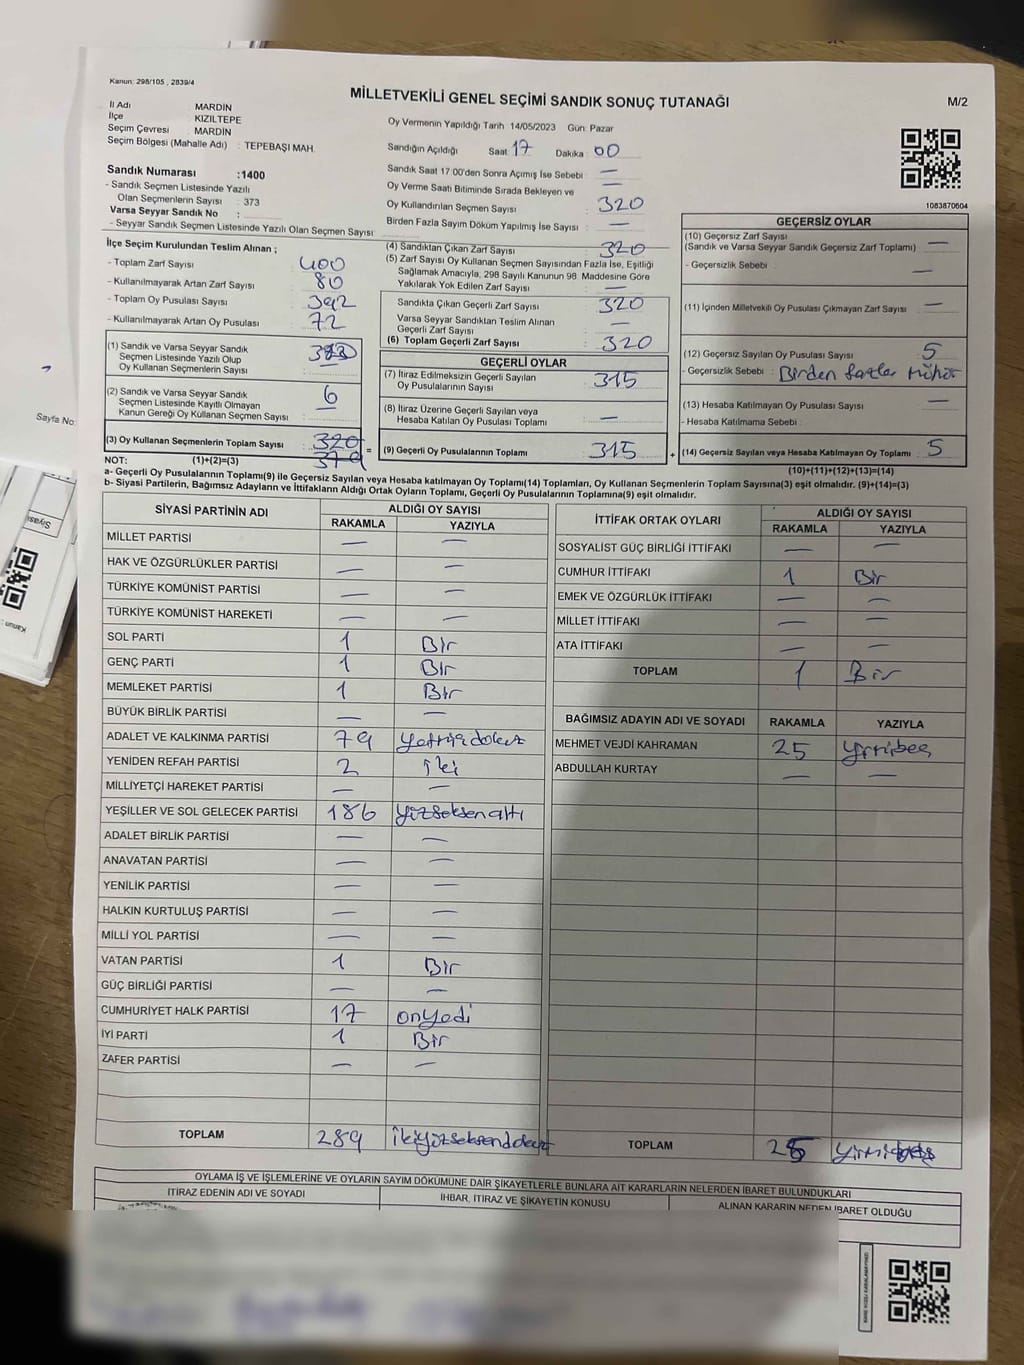 Kanun: 298/105 , 2839/4
MİLLETVEKİLİ GENEL SEÇİMİ SANDIK SONUÇ TUTANAĞI
M/2
İl Adı MARDİN
İlçe KIZILTEPE
Seçim Çevresi : MARDİN
Seçim Bölgesi (Mahalle Adı) : TEPEBAŞI MAH.
Sandık Numarası :1400
- Sandık Seçmen Listesinde Yazılı
Olan Seçmenlerin Sayısı : 373
Varsa Seyyar Sandık No :
- Seyyar Sandık Seçmen Listesinde Yazılı Olan Seçmen Sayısı :
Oy Vermenin Yapıldığı Tarih 14/05/2023 Gün: Pazar
Sandığın Açıldığı Saat 17 Dakika : 00
Sandık Saat 17:00'den Sonra Açımış İse Sebebi : —
Oy Verme Saati Bitiminde Sırada Bekleyen ve —
Oy Kullandırılan Seçmen Sayısı : 320
Birden Fazla Sayım Döküm Yapılmış İse Sayısı : —
1083870604
İlçe Seçim Kurulundan Teslim Alınan ;
- Toplam Zarf Sayısı : 400
- Kullanılmayarak Artan Zarf Sayısı : 80
- Toplam Oy Pusulası Sayısı : 392
- Kullanılmayarak Artan Oy Pusulası : 72
(1) Sandık ve Varsa Seyyar Sandık
Seçmen Listesinde Yazılı Olup
Oy Kullanan Seçmenlerin Sayısı :
(2) Sandık ve Varsa Seyyar Sandık 6
Seçmen Listesinde Kayıtlı Olmayan
Kanun Gereği Oy Kullanan Seçmen Sayısı : —
(3) Oy Kullanan Seçmenlerin Toplam Sayısı : 320
379 =
(4) Sandıktan Çıkan Zarf Sayısı : 320
(5) Zarf Sayısı Oy Kullanan Seçmen Sayısından Fazla İse, Eşitliği
Sağlamak Amacıyla, 298 Sayılı Kanunun 98. Maddesine Göre
Yakılarak Yok Edilen Zarf Sayısı : —
Sandıkta Çıkan Geçerli Zarf Sayısı : 320
Varsa Seyyar Sandıktan Teslim Alınan
Geçerli Zarf Sayısı : —
(6) Toplam Geçerli Zarf Sayısı : 320
GEÇERLİ OYLAR
(7) İtiraz Edilmeksizin Geçerli Sayılan
Oy Pusulalarının Sayısı : 315
(8) İtiraz Üzerine Geçerli Sayılan veya
Hesaba Katılan Oy Pusulası Toplamı : —
(9) Geçerli Oy Pusulalarının Toplamı : 315 +
GEÇERSİZ OYLAR
(10) Geçersiz Zarf Sayısı
(Sandık ve Varsa Seyyar Sandık Geçersiz Zarf Toplamı) : —
- Geçersizlik Sebebi : —
(11) İçinden Milletvekili Oy Pusulası Çıkmayan Zarf Sayısı : —
(12) Geçersiz Sayılan Oy Pusulası Sayısı : 5
- Geçersizlik Sebebi : Birden fazla mühür
(13) Hesaba Katılmayan Oy Pusulası Sayısı : —
- Hesaba Katılmama Sebebi :
(14) Geçersiz Sayılan veya Hesaba Katılmayan Oy Toplamı : 5
NOT: (1)+(2)=(3)
(10)+(11)+(12)+(13)=(14)
a- Geçerli Oy Pusulalarının Toplamı(9) ile Geçersiz Sayılan veya Hesaba katılmayan Oy Toplamı(14) Toplamları, Oy Kullanan Seçmenlerin Toplam Sayısına(3) eşit olmalıdır. (9)+(14)=(3)
b- Siyasi Partilerin, Bağımsız Adayların ve İttifakların Aldığı Ortak Oyların Toplamı, Geçerli Oy Pusulalarının Toplamına(9) eşit olmalıdır.
SİYASİ PARTİNİN ADI ALDIĞI OY SAYISI
RAKAMLA YAZIYLA
MİLLET PARTİSİ — —
HAK VE ÖZGÜRLÜKLER PARTİSİ — —
TÜRKİYE KOMÜNİST PARTİSİ — —
TÜRKİYE KOMÜNİST HAREKETİ — —
SOL PARTİ 1 Bir
GENÇ PARTİ 1 Bir
MEMLEKET PARTİSİ 1 Bir
BÜYÜK BİRLİK PARTİSİ — —
ADALET VE KALKINMA PARTİSİ 79 yetmişdokuz
YENİDEN REFAH PARTİSİ 2 iki
MİLLİYETÇİ HAREKET PARTİSİ — —
YEŞİLLER VE SOL GELECEK PARTİSİ 186 yüzseksenaltı
ADALET BİRLİK PARTİSİ — —
ANAVATAN PARTİSİ — —
YENİLİK PARTİSİ — —
HALKIN KURTULUŞ PARTİSİ — —
MİLLİ YOL PARTİSİ — —
VATAN PARTİSİ 1 Bir
GÜÇ BİRLİĞİ PARTİSİ — —
CUMHURİYET HALK PARTİSİ 17 onyedi
İYİ PARTİ 1 Bir
ZAFER PARTİSİ — —
TOPLAM 289 ikiyüzseksendokuz
İTTİFAK ORTAK OYLARI ALDIĞI OY SAYISI
RAKAMLA YAZIYLA
SOSYALİST GÜÇ BİRLİĞİ İTTİFAKI — —
CUMHUR İTTİFAKI 1 Bir
EMEK VE ÖZGÜRLÜK İTTİFAKI — —
MİLLET İTTİFAKI — —
ATA İTTİFAKI — —
TOPLAM 1 Bir
BAĞIMSIZ ADAYIN ADI VE SOYADI RAKAMLA YAZIYLA
MEHMET VEJDİ KAHRAMAN 25 yirmibeş
ABDULLAH KURTAY — —
TOPLAM 25 yirmibeş
OYLAMA İŞ VE İŞLEMLERİNE VE OYLARIN SAYIM DÖKÜMÜNE DAİR ŞİKAYETLERLE BUNLARA AİT KARARLARIN NELERDEN İBARET BULUNDUKLARI
İTİRAZ EDENİN ADI VE SOYADI İHBAR, İTİRAZ VE ŞİKAYETİN KONUSU ALINAN KARARIN NEDEN İBARET OLDUĞU
Sayfa No:
Siyasi
Kanun :